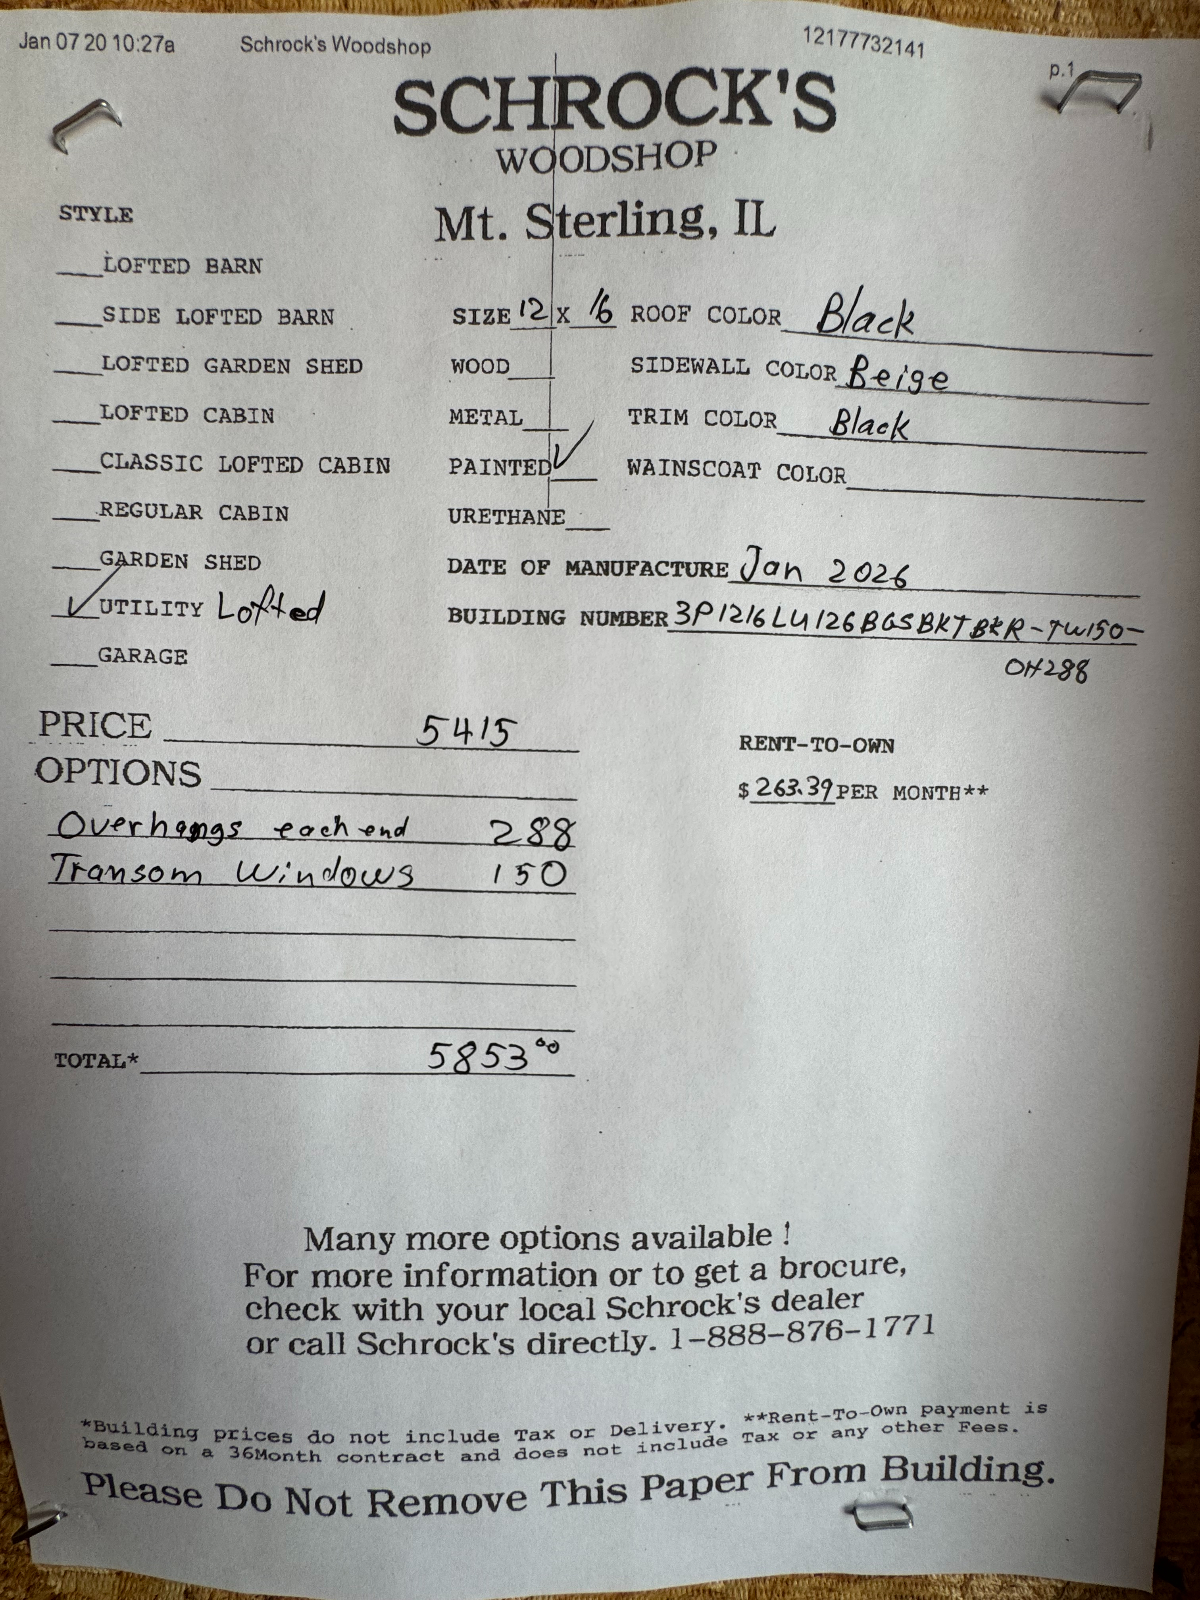 Jan 07 20 10:27a Schrock's Woodshop 12177732141 p.1
SCHROCK'S
WOODSHOP
Mt. Sterling, IL
STYLE
___LOFTED BARN
___SIDE LOFTED BARN
___LOFTED GARDEN SHED
___LOFTED CABIN
___CLASSIC LOFTED CABIN
___REGULAR CABIN
___GARDEN SHED
✓UTILITY Lofted
___GARAGE
SIZE 12 X 16
WOOD___
METAL___
PAINTED ✓
URETHANE___
ROOF COLOR Black
SIDEWALL COLOR Beige
TRIM COLOR Black
WAINSCOAT COLOR___
DATE OF MANUFACTURE Jan 2026
BUILDING NUMBER 3P1216LU126BGSBKTBKR-TW150-
OH288
PRICE 5415
OPTIONS
Overhangs each end 288
Transom Windows 150
TOTAL* 5853⁰⁰
RENT-TO-OWN
$263.39 PER MONTH**
Many more options available !
For more information or to get a brocure,
check with your local Schrock's dealer
or call Schrock's directly. 1-888-876-1771
*Building prices do not include Tax or Delivery. **Rent-To-Own payment is
based on a 36Month contract and does not include Tax or any other Fees.
Please Do Not Remove This Paper From Building.